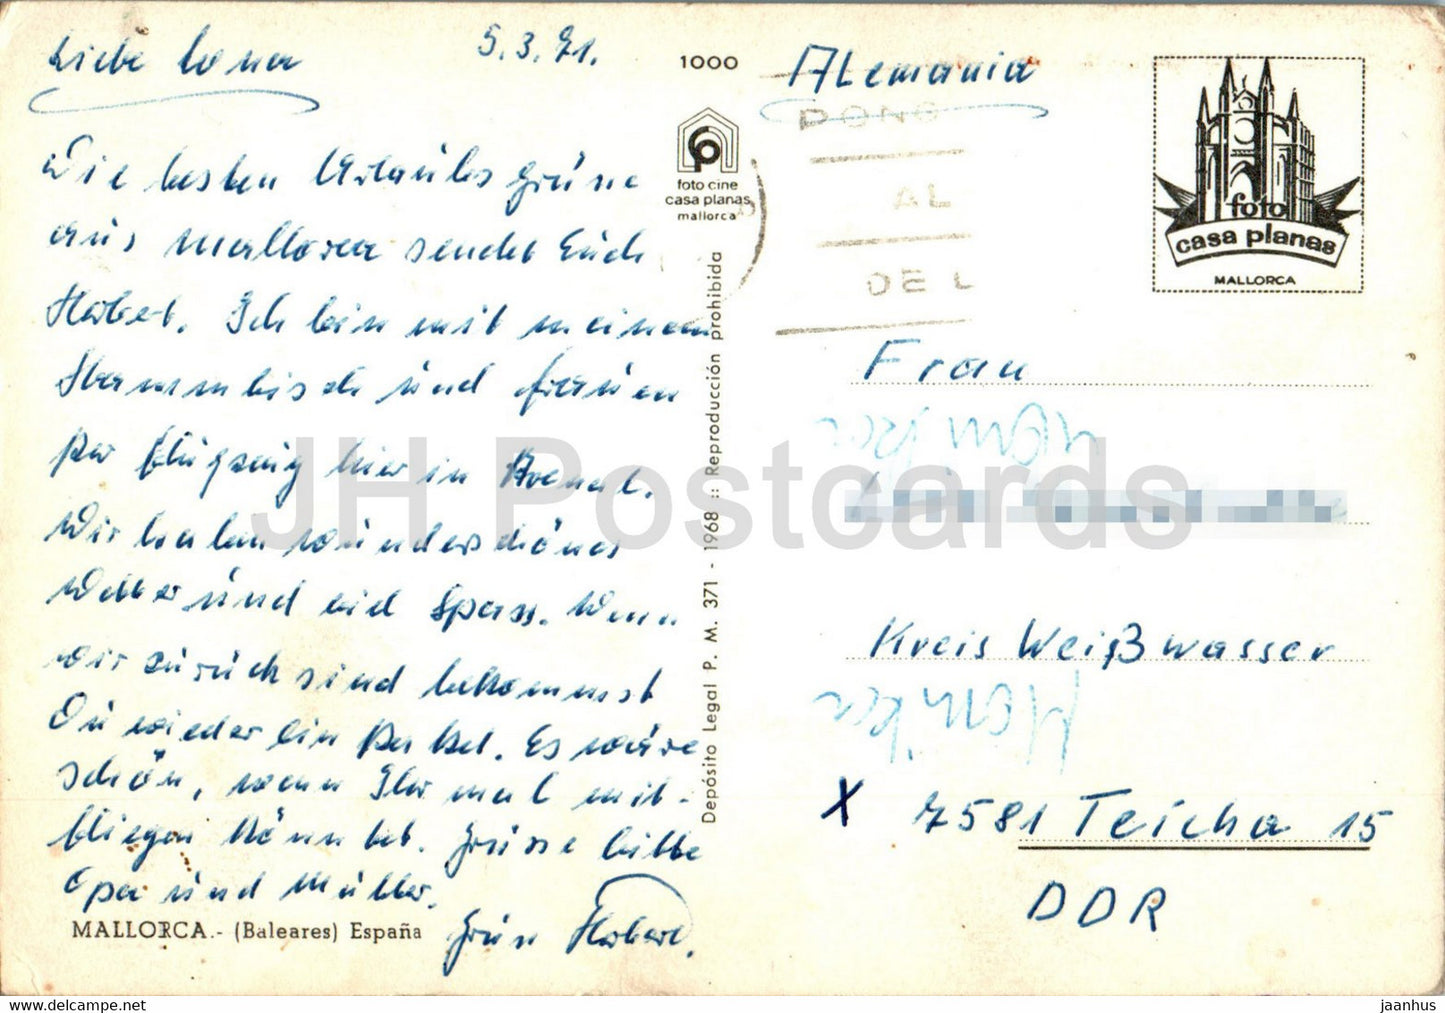 Liebe Lona
5.3.71.
Die besten Urlaubsgrüsse
aus Mallorca sendet Euch
Herbert. Ich bin mit meinem
Stammtisch und Frauen
per Flugzeug hier in Arenal.
Wir haben wunderschönes
Wetter und viel Spass. Wenn
wir zurück sind bekommst
Du wieder ein Paket. Es wäre
schön, wenn Ihr mal mit-
fliegen könntet. Grüsse bitte
Opa und Mutter.
Gruss Herbert.
MALLORCA.- (Baleares) España
1000
foto cine
casa planas
mallorca
Depósito Legal P. M. 371 - 1968 :: Reproducción prohibida
Alemania
PONG
AL
DE L
foto
casa planas
MALLORCA
Frau
Monika
Kreis Weißwasser
Monika
X 7581 Teicha 15
DDR
JH Postcards
https://jhpostcards.com
jaanhus